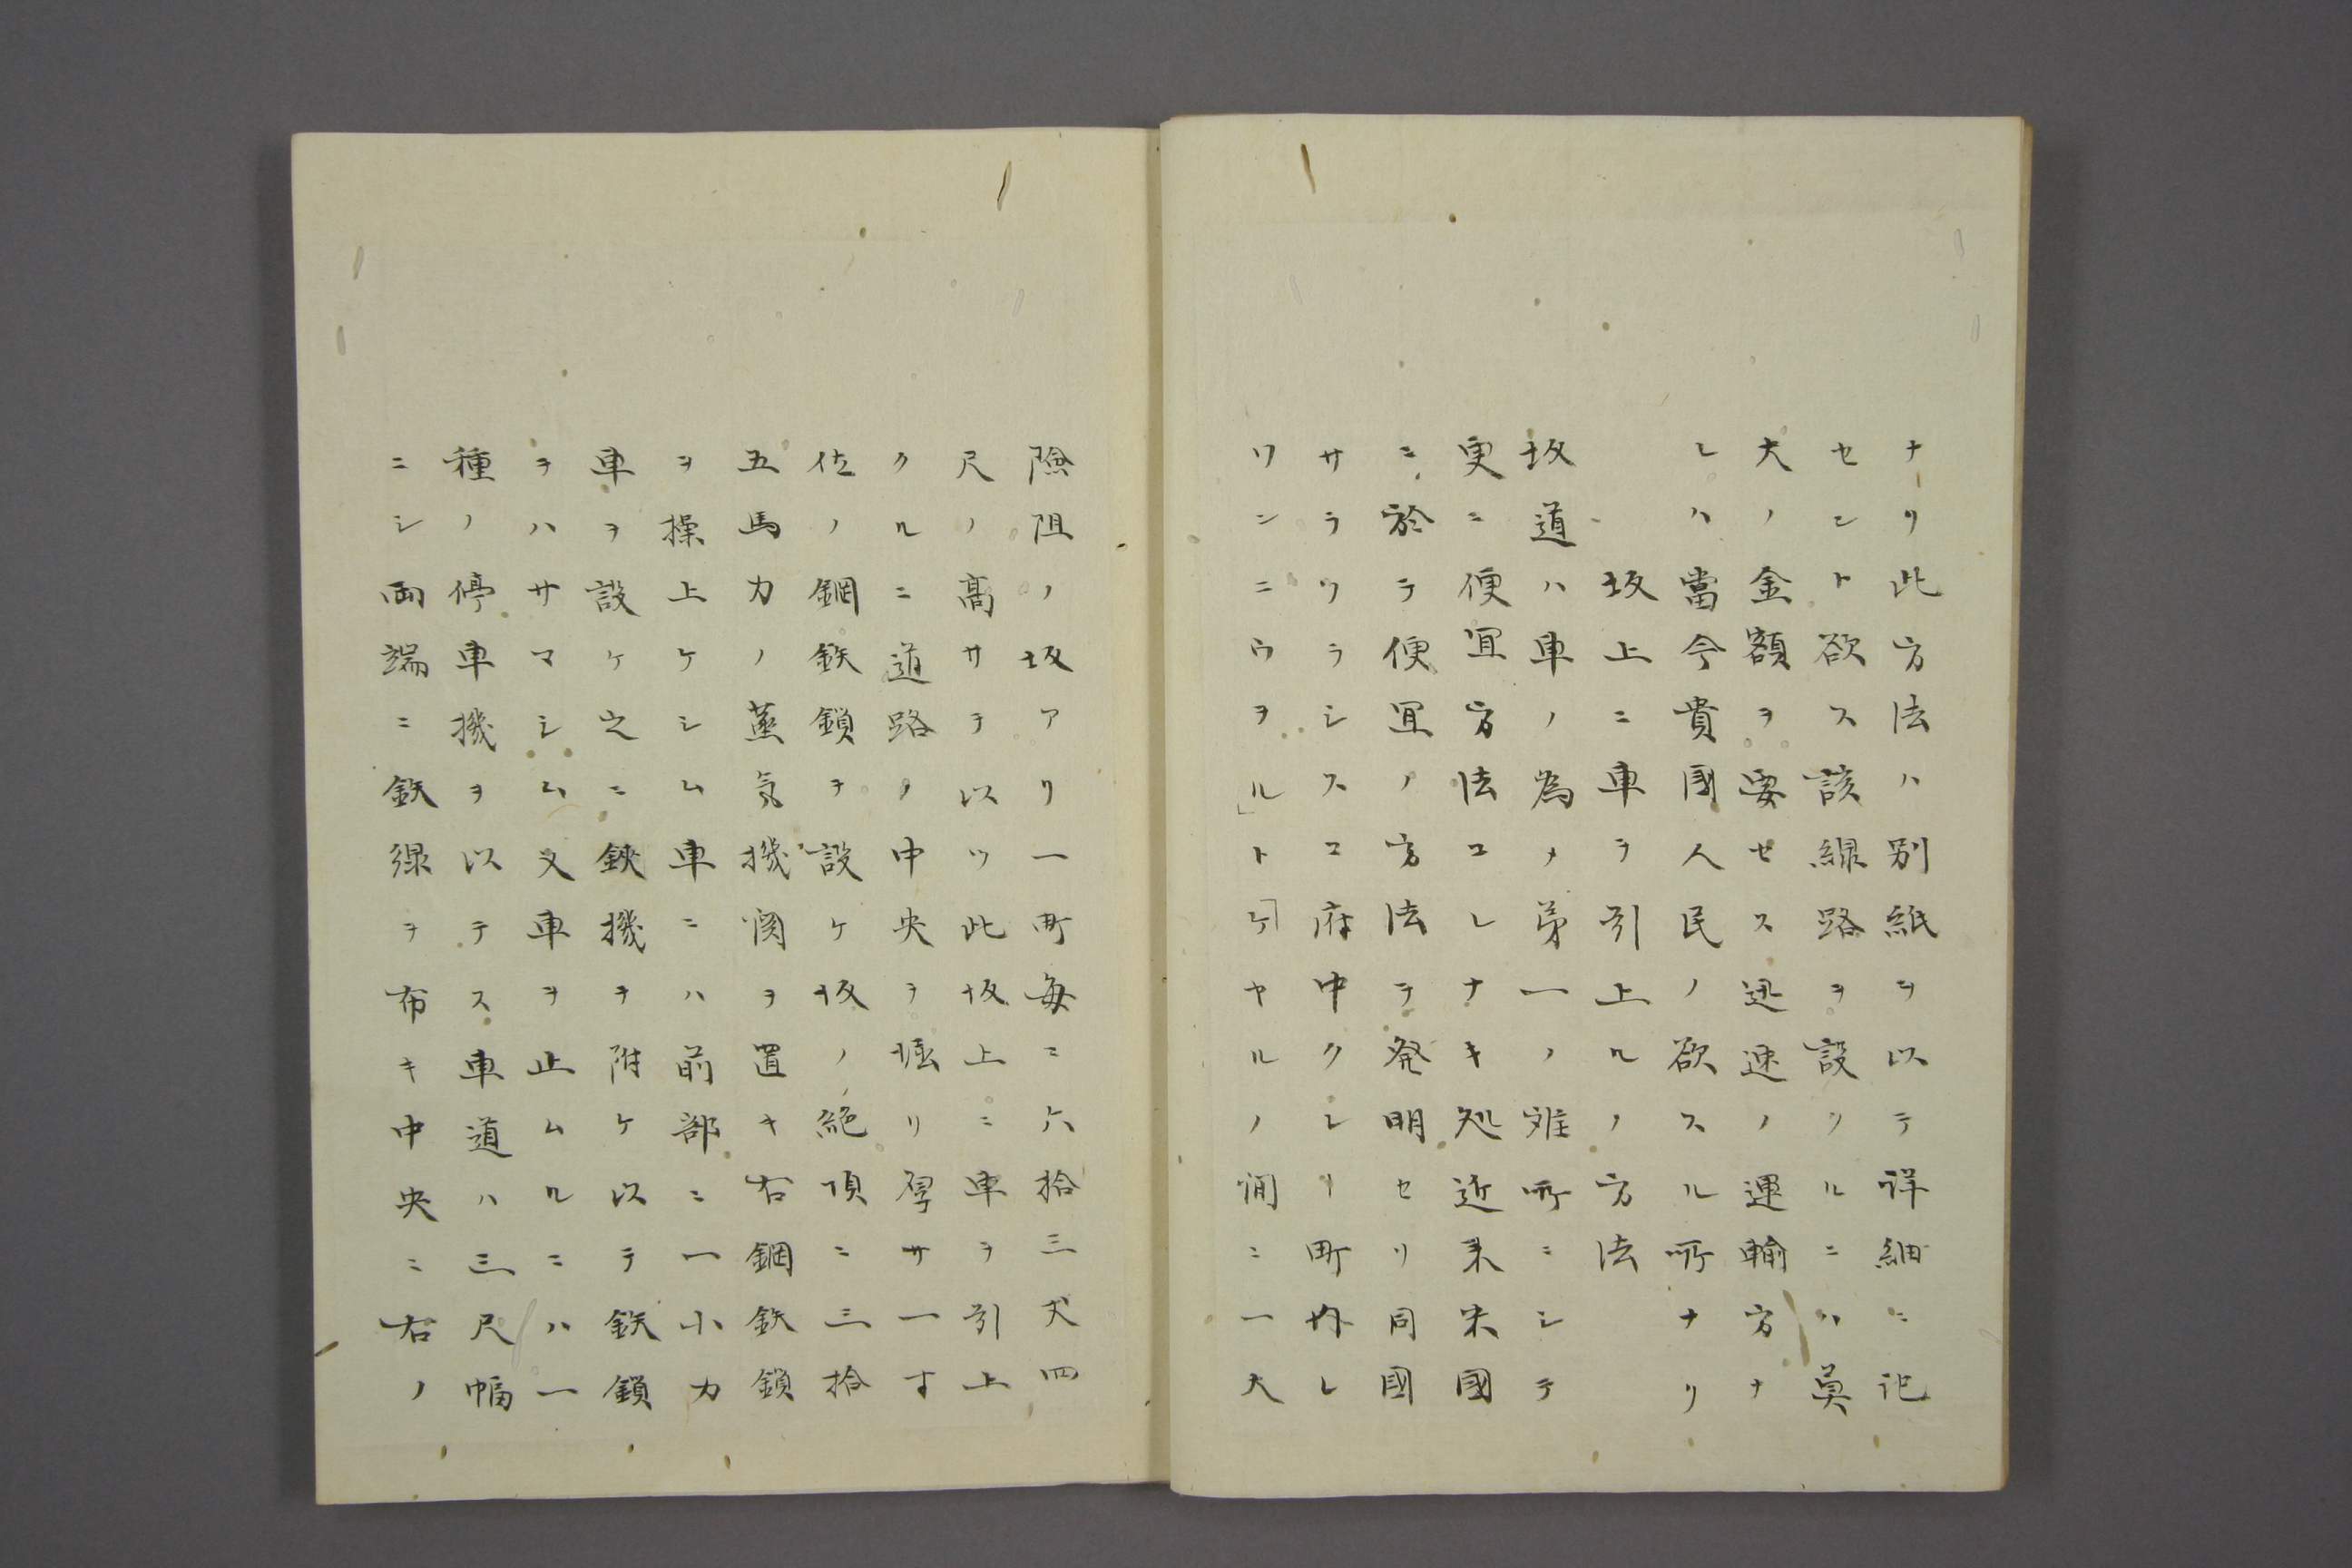 ナリ此方法ハ別紙ヲ以テ詳細ニ記
セント欲ス該線路ヲ設クルニハ莫
大ノ金額ヲ要セス迅速ノ運輸方ナ
レハ當今貴國人民ノ欲スル所ナリ
坂上ニ車ヲ引上ルノ方法
坂道ハ車ノ為メ第一ノ难所ニシテ
更ニ便宜方法コレナキ処近来米國
ニ於テ便宜ノ方法ヲ発明セリ同國
サラワラシスコ府中クレー町外レ
ワンニウヲル」ト「ケヤルノ间ニ一大
險阻ノ坂アリ一町毎ニ六拾三丈四
尺ノ髙サヲ以ツ此坂上ニ車ヲ引上
クルニ道路ノ中央ヲ堀リ厚サ一寸
位ノ鋼鉄鎖ヲ設ケ坂ノ絶頂ニ三拾
五馬力ノ蒸気機関ヲ置キ右鋼鉄鎖
ヲ操上ケシム車ニハ前部ニ一小力
車ヲ設ケ之ニ鋏機ヲ附ケ以テ鉄鎖
ヲハサマシム又車ヲ止ムルニハ一
種ノ停車機ヲ以テス車道ハ三尺幅
ニシ両端ニ鉄線ヲ布キ中央ニ右ノ